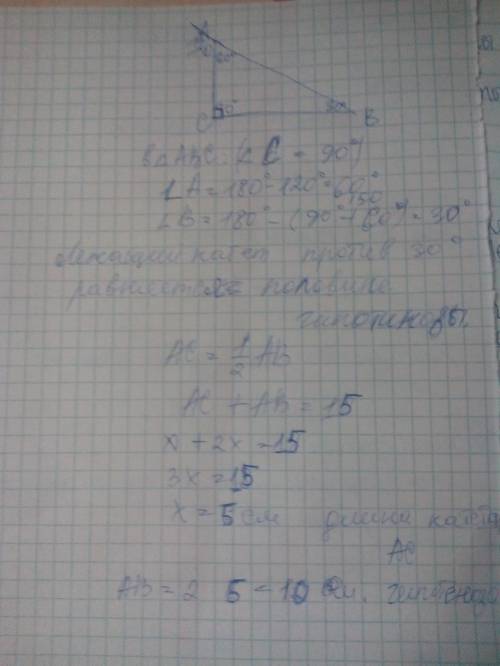 A
60°
C 90° 30° B
В △ABC: (∠C = 90°)
∠A = 180° - 120° = 60°
150
∠B = 180° - (90° + 60°) = 30°
Лежащий катет против 30°
равняется половине
гипотинозы.
AC = 1/2 AB
AC + AB = 15
x + 2x = 15
3x = 15
x = 5 см длина катета
AC
AB = 2 5 = 10 см.